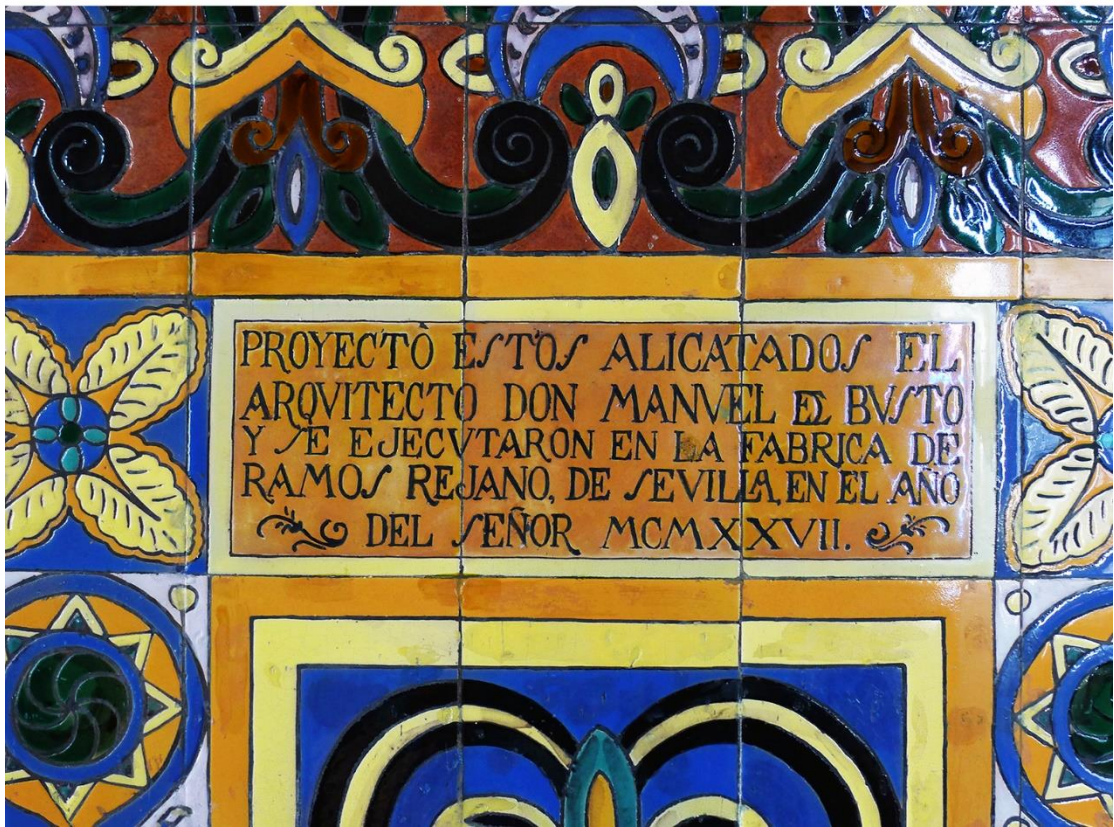 PROYECTÒ ESTOS ALICATADOS EL
ARQVITECTO DON MANVEL DEL BVSTO
Y SE EJECVTARON EN LA FABRICA DE
RAMOS REJANO, DE SEVILLA, EN EL AÑO
DEL SEÑOR MCMXXVII.